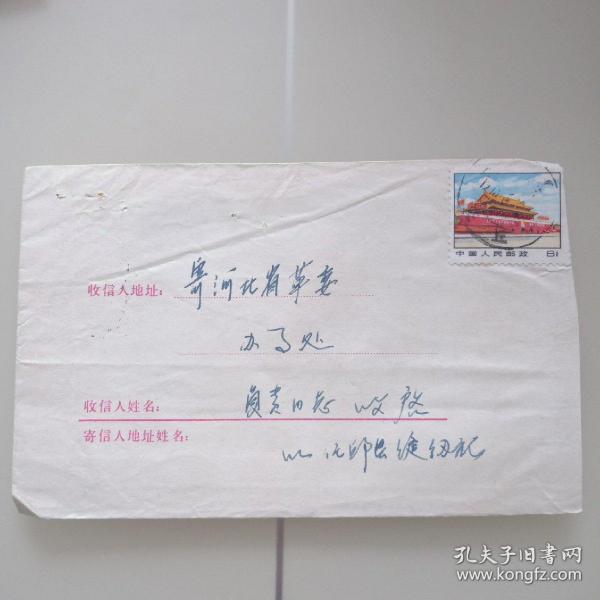 中国人民邮政 8分
收信人地址: 寄河北省革委
办事处
收信人姓名: 负责同志 收启
寄信人地址姓名:
孔夫子旧书网
www.kongfz.com